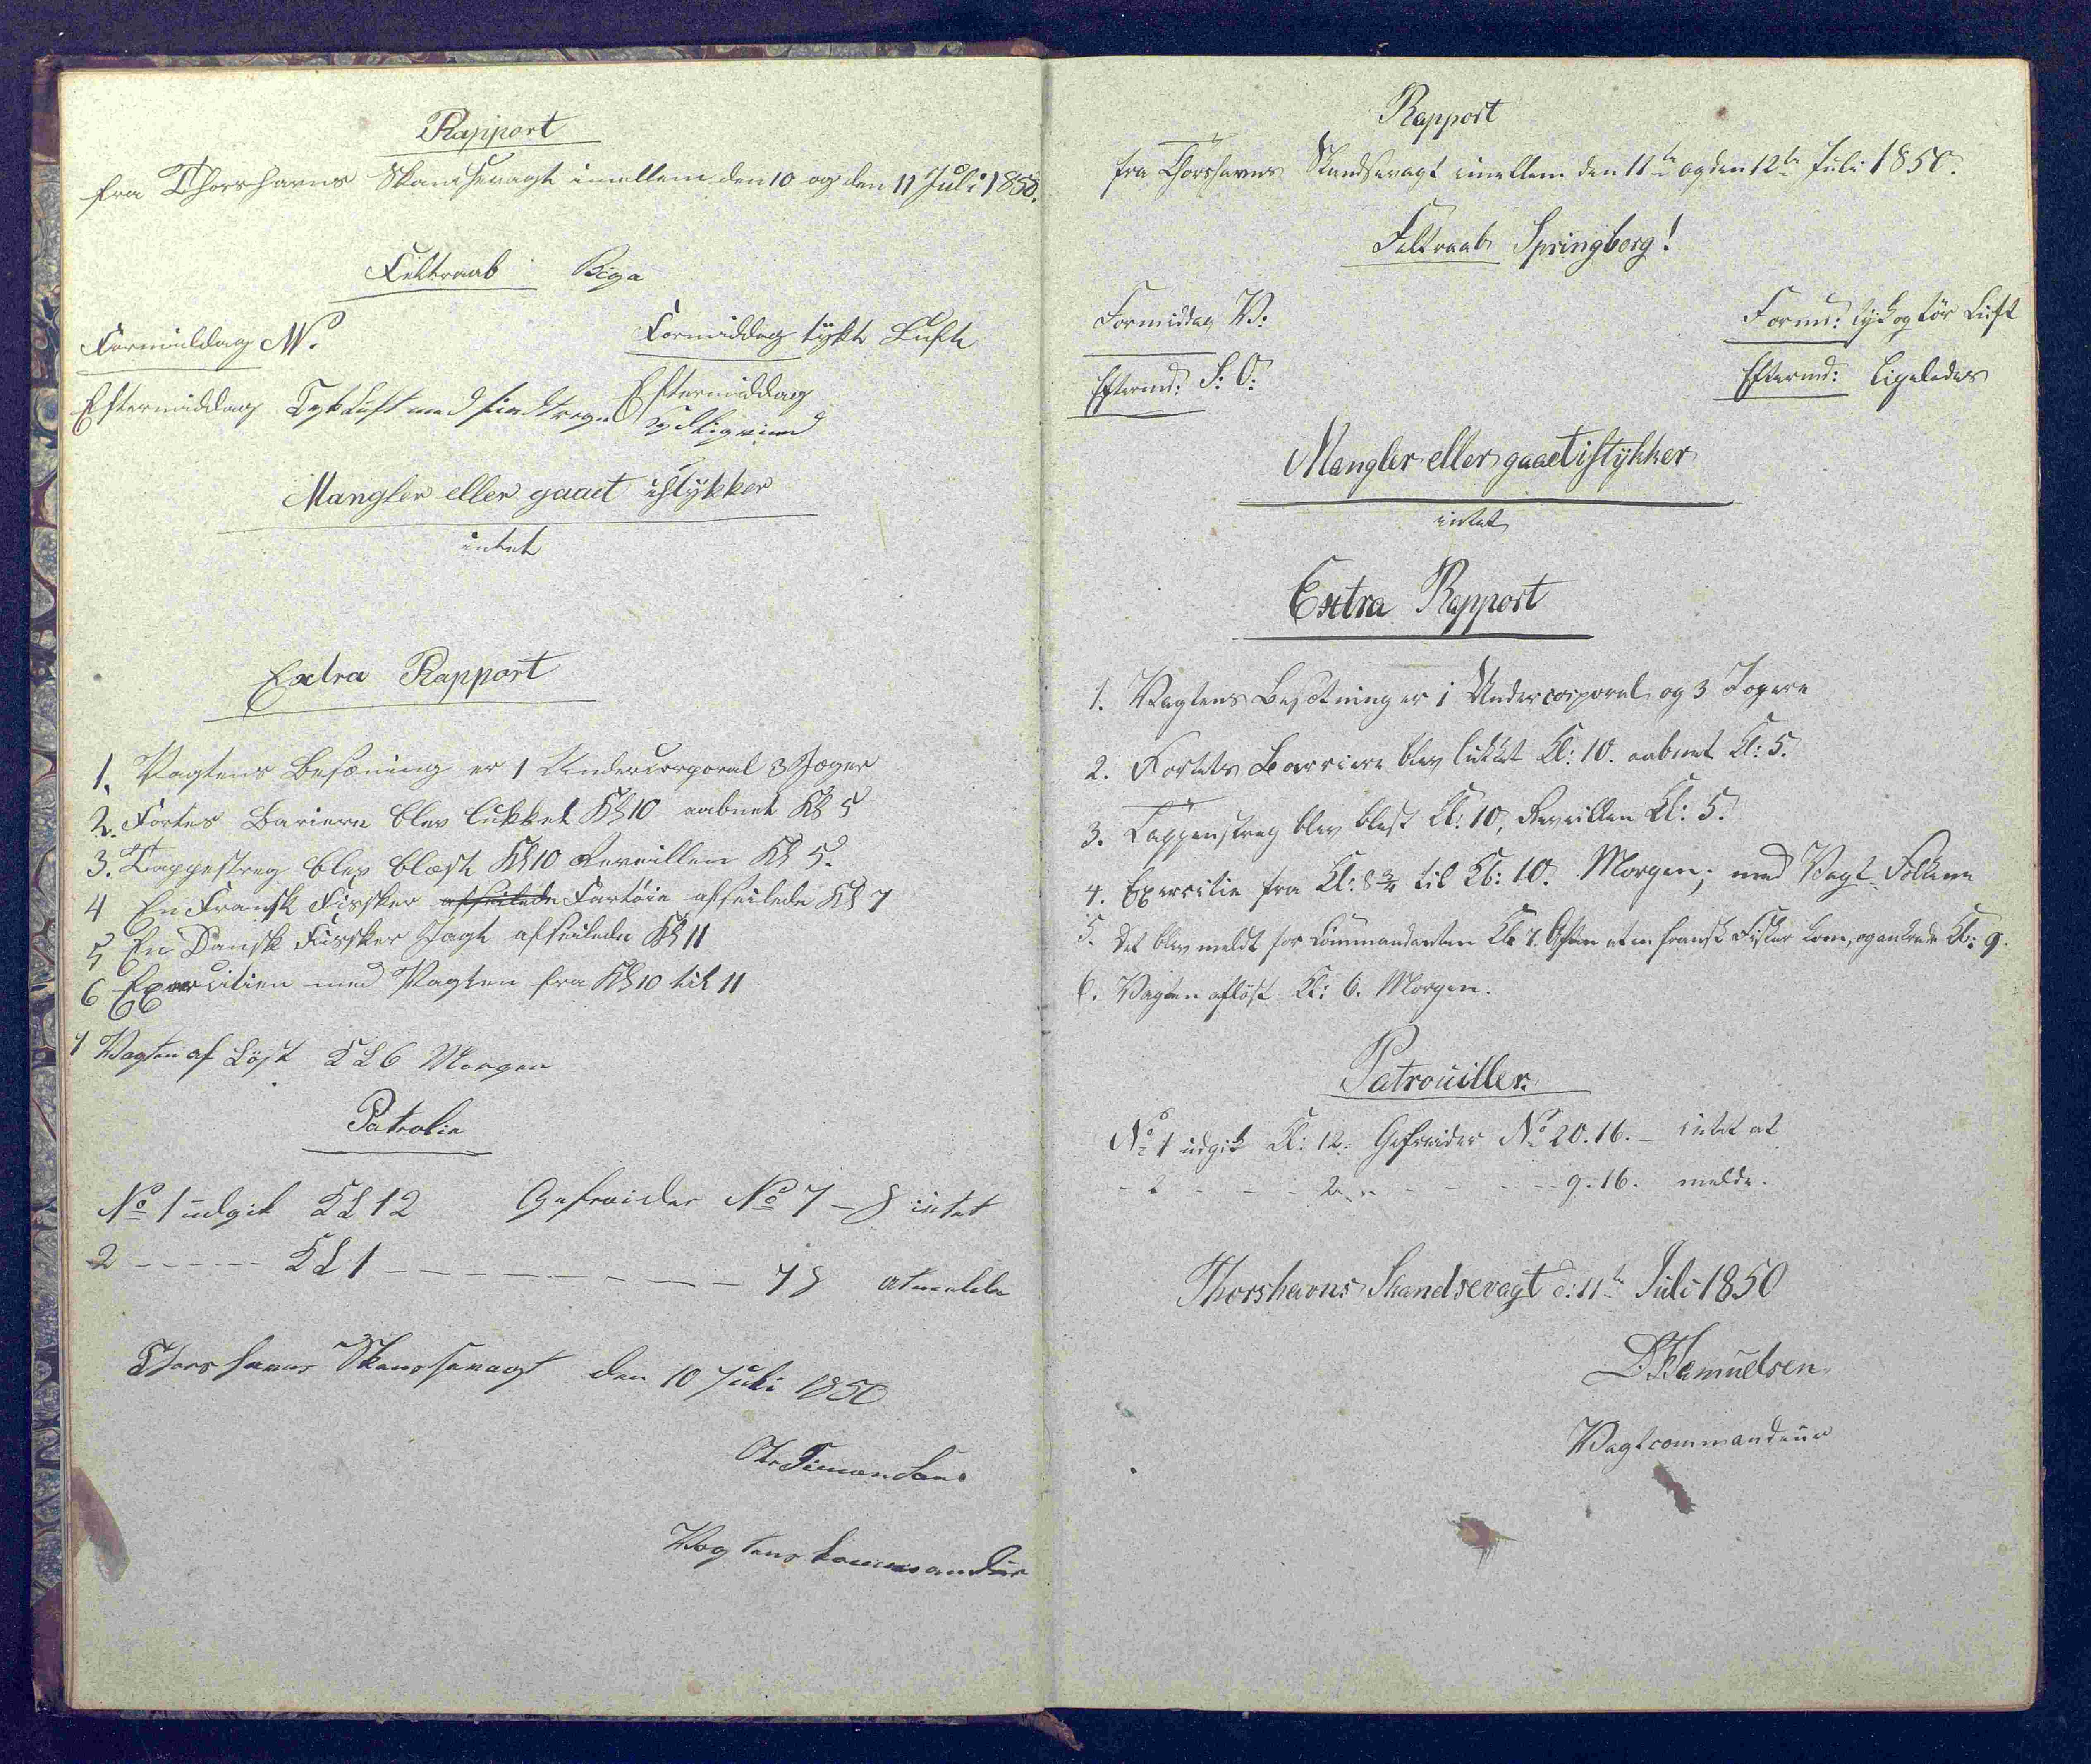 Rapport
fra Thorshavns Skandsevagt imellem den 10 og den 11 Juli 1850.
Feltraab Riga
Formiddag NV.
Formiddag tykt Luft
Eftermiddag Tyk Luft med fiintregn
Eftermiddag
Mangler eller gaaet istÿkker
intet
Extra Rapport
1. Vagtens Besæning er 1 Undercorporal 3 Jæger
2. Fortes Bariere blev lukket Kl 10 aabnet Kl 5
3. Tappestreg blev blæst Kl 10 Reveillen Kl 5.
4 En Fransk Fissker afseilede Fartöie afseilede Kl 7
5 En Dansk Fissker Jagt afseilede Kl 11
6 Exercitien med Vagten fra Kl 10 til 11
7 Vagten af Löst Kl 6 Morgen
Patrolie
No 1 udgik Kl 12 Gefreider No 7 - 8 intet
2 - - - - - Kl 1 - - - - - - - - - - 7 8 at melde
Thorshavns Skansevagt den 10 Juli 1850
Vagtens kommandür
Rapport
fra Thorshavns Skandsevagt imellem den 11te og den 12te Juli 1850.
Feltraab Springborg!
Formiddag V:
Formd: tyk og tör Luft
Eftermd: S: O:
Eftermd: ligeledes
Mangler eller gaaet istÿkker
intet
Extra Rapport
1. Vagtens Besætning er 1 Undercorporal og 3 Jægere
2. Fortets Barriere blev lukket Kl: 10. aabnet Kl: 5.
3. Tappenstreg blev blæst Kl: 10, Reveillen Kl: 5.
4. Exercitie fra Kl: 8 3/4 til Kl: 10. Morgen; med Vagt-Folkene
5. Det blev meldt for Commandanten Kl: 7. Aften at en fransk Fisker kom, og ankrede Kl: 9.
6. Vagten aflöst Kl: 6. Morgen.
Patrouiller.
No 1 udgik Kl: 12. Gefreider No 20. 16. - intet at
- 2 - - - - 2 - - - - - - - 9. 16. melde.
Thorshavns Skandsevagt d: 11te Juli 1850
Samuelsen
Vagtcommandeur